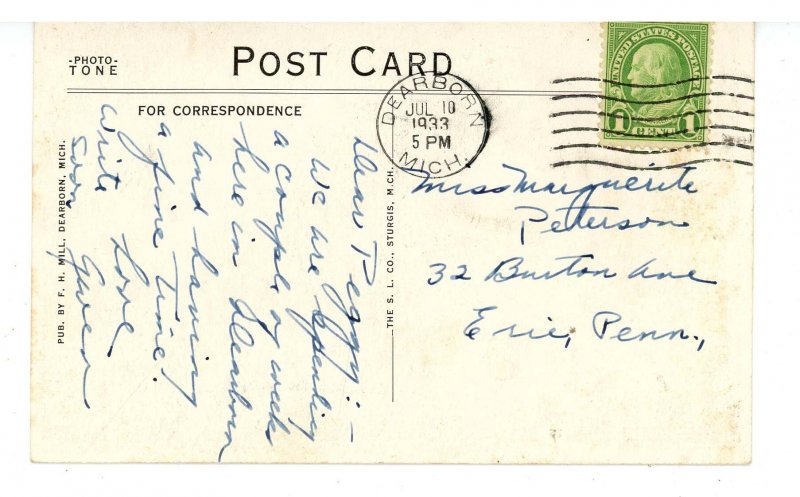 -PHOTO-
TONE
POST CARD
FOR CORRESPONDENCE
DEARBORN
JUL 10
1933
5 PM
MICH.
UNITED STATES POSTAGE
1 CENT 1
PUB. BY F. H. MILL, DEARBORN, MICH.
THE S. L. CO., STURGIS, MICH.
Dear Peggy:-
We are spending
a couple of weeks
here in Dearborn
and having
a fine time.
Write
soon
Love
Gwen
Miss Marguerite
Peterson
32 Burton Ave
Erie, Penn.,